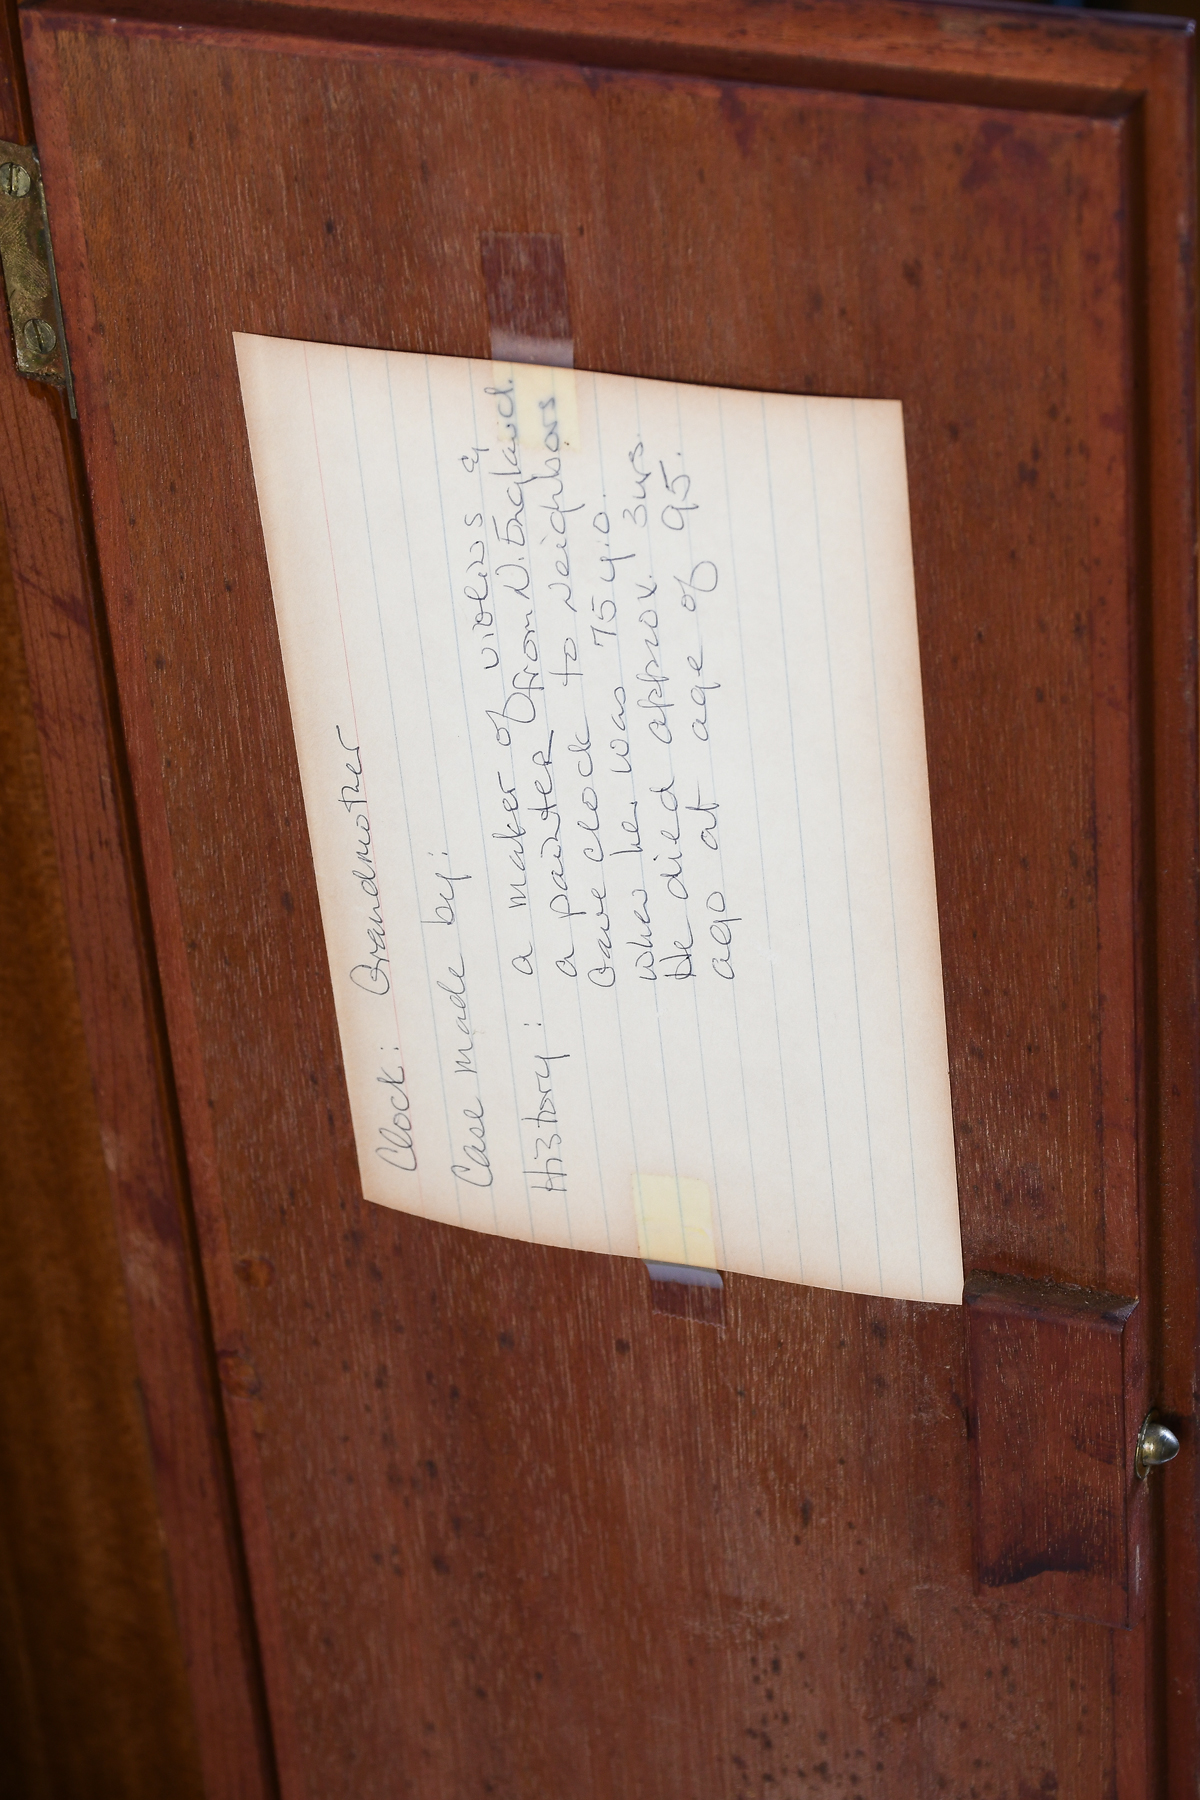 Clock: Grandmother
Case made by:
History: a maker of violins &
a painter from N. England.
Gave clock to neighbors
when he was 75 y.o.
He died approx. 3 yrs.
ago at age of 95.